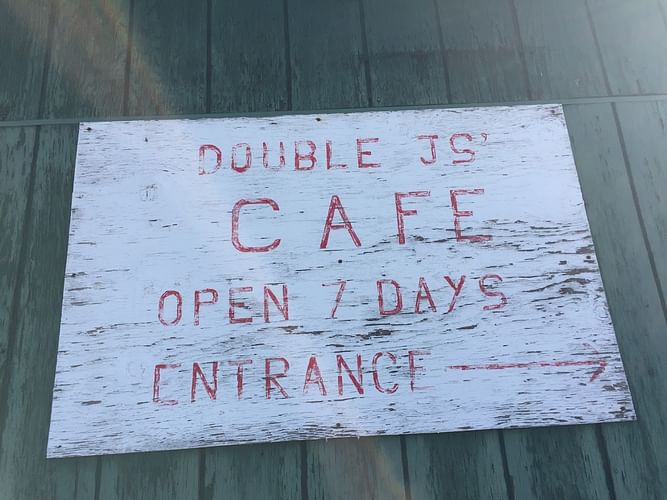 DOUBLE JS'
CAFE
OPEN 7 DAYS
ENTRANCE →